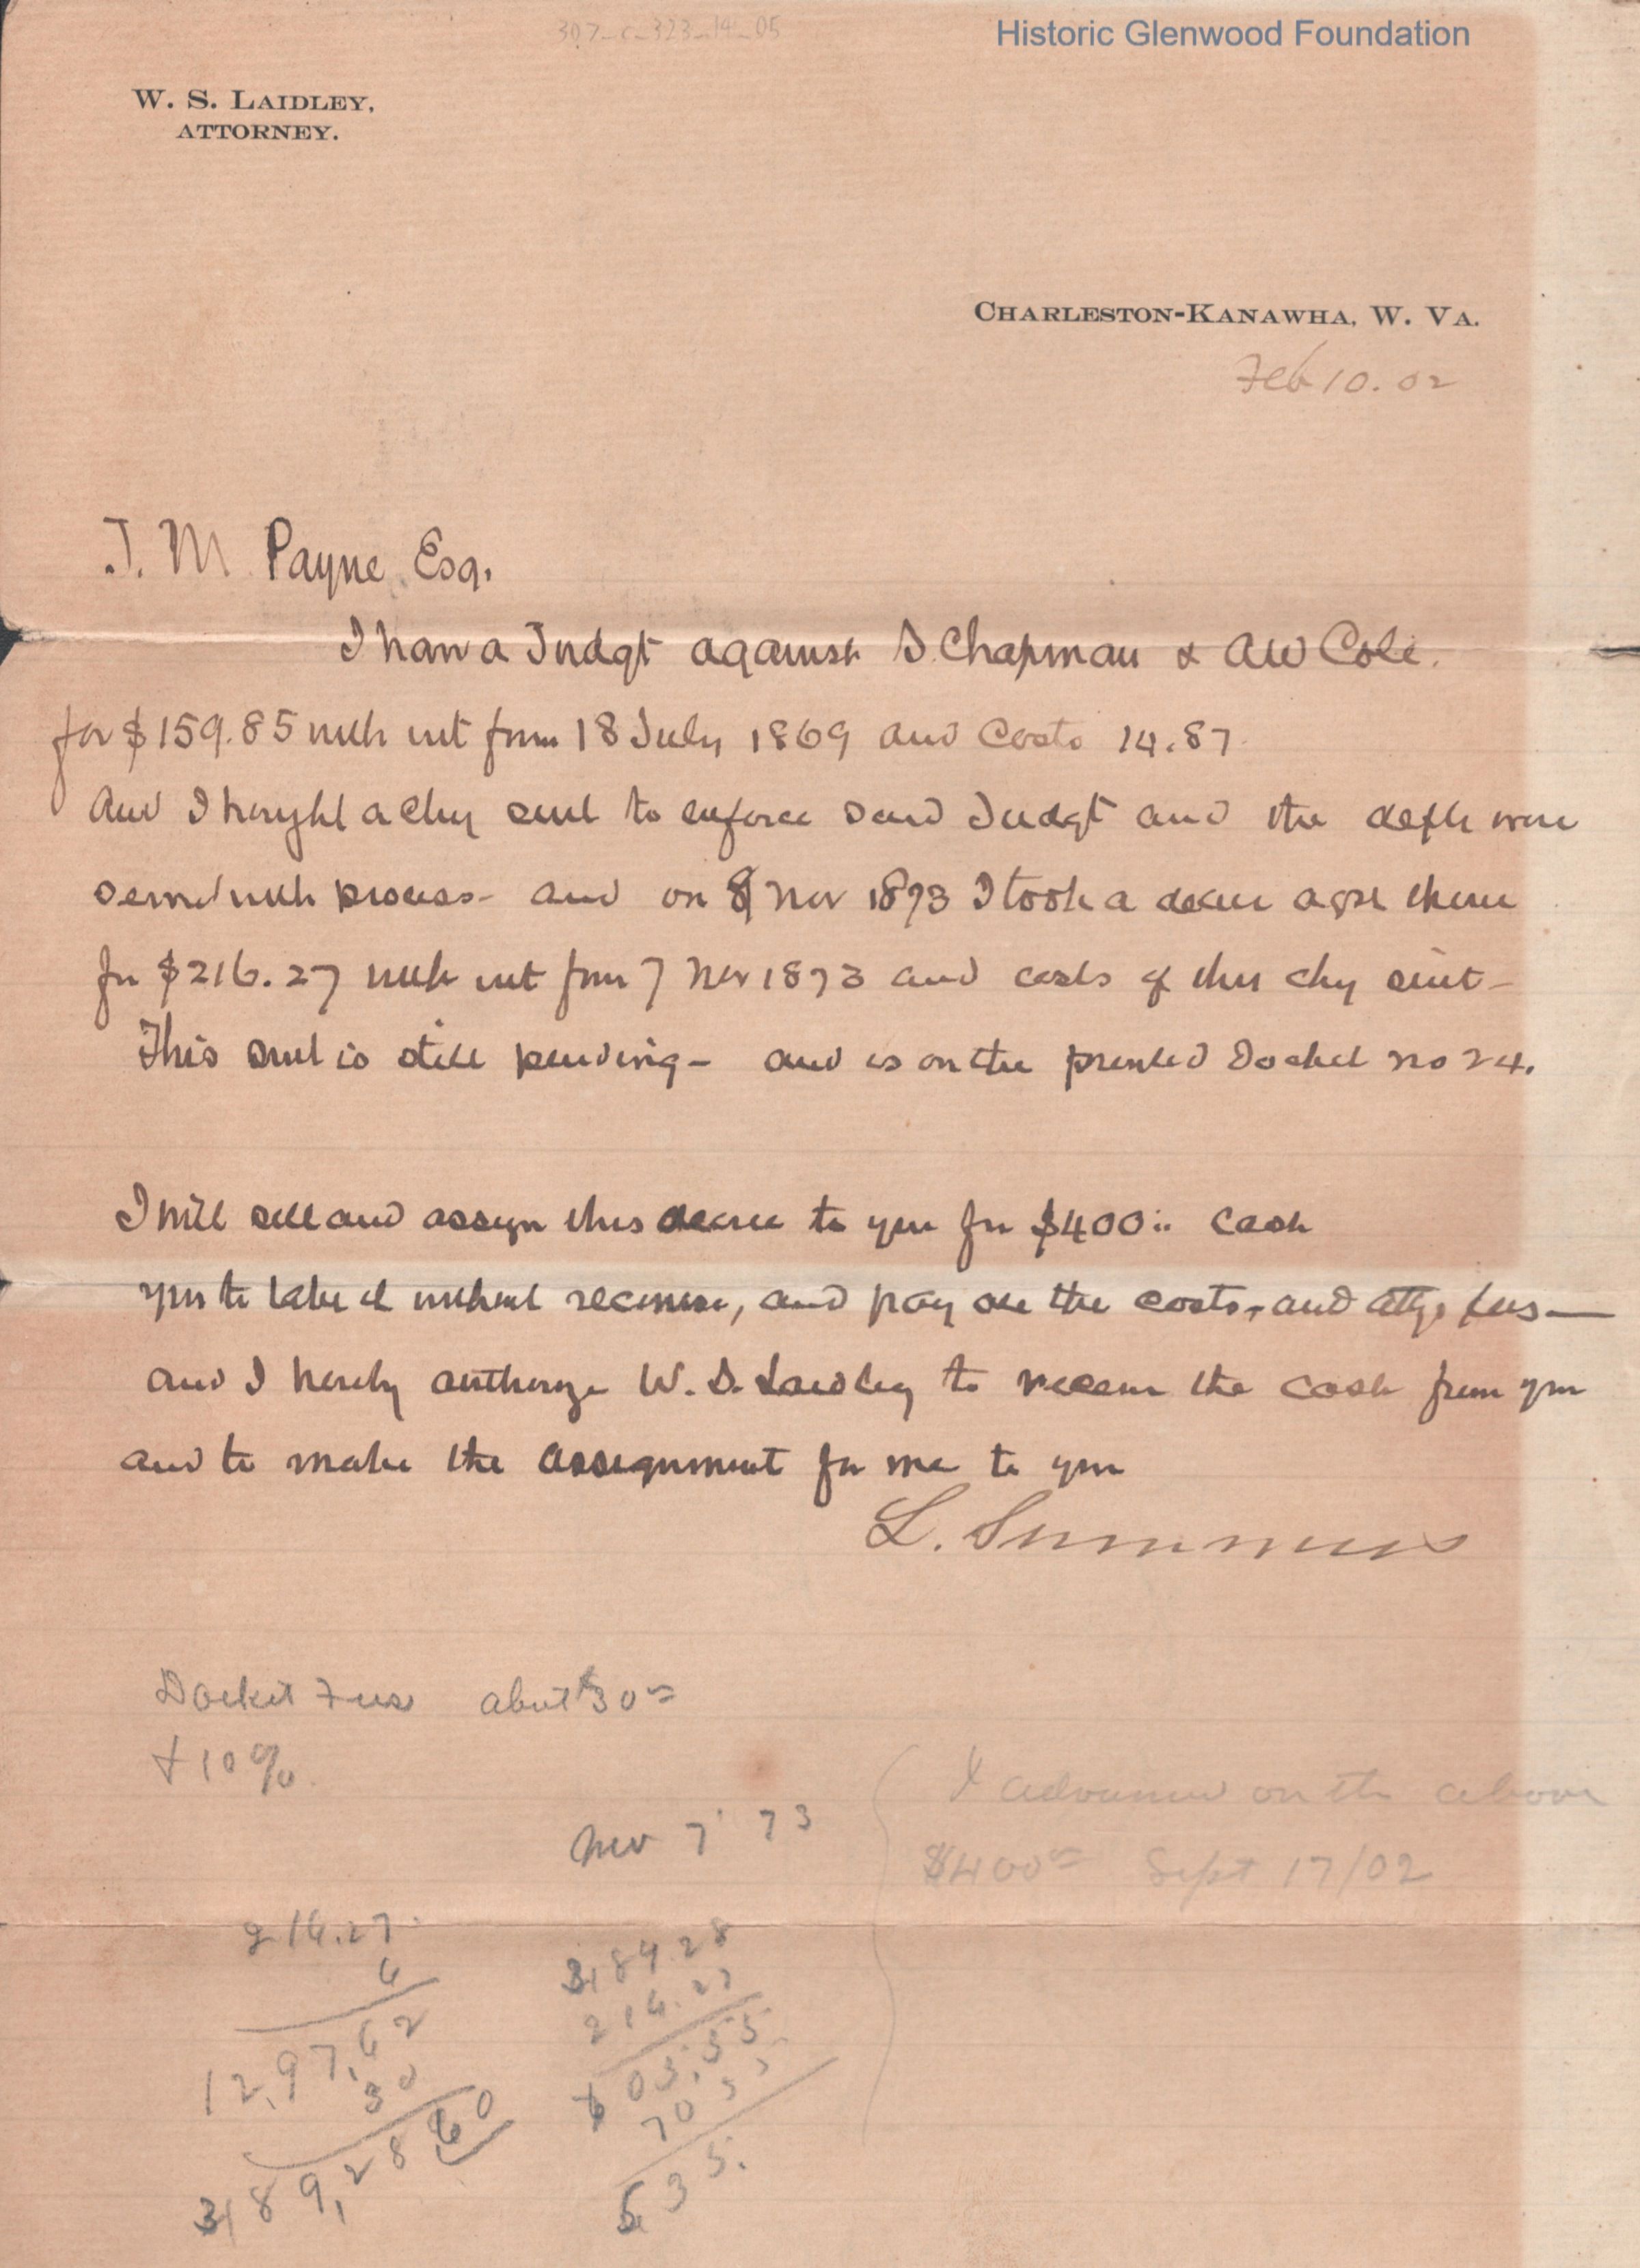 307-c-323-14-05
Historic Glenwood Foundation
W. S. LAIDLEY,
ATTORNEY.
CHARLESTON-KANAWHA, W. VA.
Feb 10. 02
J. M. Payne Esq.
I have a Judgt against S. Chapman & AW Cole.
for $159.85 with int from 18 July 1869 and costs 14.87
And I brought a chy suit to enforce said Judgt and the defts were
served with process - and on 8 Nov 1873 I took a decree agst them
for $216.27 with int from 7 Nov 1873 and costs of this chy suit -
This suit is still pending - and is on the printed Docket no 24.
I will sell and assign this decree to you for $400 cash
you to take it without recourse, and pay all the costs, and attys fees —
and I hereby authorize W. S. Laidley to receive the cash from you
and to make the assignment for me to you
L. Summers
Docket Fees about $30
+ 10 %
Nov 7' 73
I advanced on the above
$400 Sept 17/02
216.27
6
12,97,62
30
389,28 60
389.28
216.27
605.55
70
535.